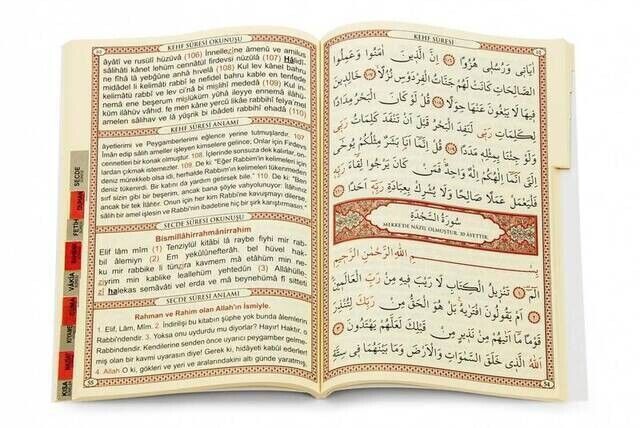 KEHF SÛRESİ OKUNUŞU
âyâtî ve rusulî hüzüvâ (106) İnnellezîne âmenû ve amilus
sâlihâti kânet lehüm cennâtül firdevsi nüzülâ (107) Hâlidî-
ne fîhâ lâ yebğûne anhâ hıvelâ (108) Kul lev kânel bahru
midâdel li kelimâti rabbî le nefidel bahru kable en tenfede
kelimâtü rabbî ve lev ci'nâ bi mislihî mededâ (109) Kul in-
nemâ ene beşerum mislüküm yûhâ ileyye ennemâ ilâhü-
küm ilâhün vâhid, fe men kâne yercû likâe rabbihî felya'mel
amelen sâlihav ve lâ yüşrik bi ıbâdeti rabbihî ehadâ (110)
KEHF SÛRESİ ANLAMI
âyetlerimi ve Peygamberlerimi eğlence yerine tutmuşlardır. 107.
İman edip sâlih ameller işleyen kimselere gelince; Onlar için Firdevs
cennetleri bir konak olmuştur. 108. İçlerinde sonsuza dek kalırlar, on-
lardan çıkmak istemezler. 109. De ki: "Eğer Rabbim'in kelimeleri için
deniz mürekkeb olsa idi, herhalde Rabbim'in kelimeleri tükenmeden
deniz tükenirdi. Bir katını da yardım getirsek bile." 110. De ki: "Ben
sırf sizin gibi bir beşerim, ancak bana şöyle vahyolunuyor: İlâhınız
ancak bir tek İlâhtır. Onun için her kim Rabbi'ne kavuşmayı dilerse,
sâlih bir amel işlesin ve Rabbi'nin ibadetine hiç bir şirk karıştırmasın."
SECDE SÛRESİ OKUNUŞU
Bismillâhirrahmânirrahîm
Elif lâm mîm (1) Tenzîlül kitâbi lâ raybe fîhi mir rab-
bil âlemîyn (2) Em yekûlûnefterâh, bel hüvel hak-
ku mir rabbike li tünzira kavmem mâ etâhüm min ne-
zîyrim min kablike leallehüm yehtedûn (3) Allâhülle-
zî halekas semâvâti vel erda ve mâ beynehümâ fî sitteti
SECDE SÛRESİ ANLAMI
Rahman ve Rahim olan Allah'ın İsmiyle.
1. Elif, Lâm, Mîm. 2. İndirilişi bu kitabın şüphe yok bunda âlemlerin
Rabbi'ndendir. 3. Yoksa onu uydurdu mu diyorlar? Hayır! Haktır, o
Rabbi'ndendir. Kendilerine senden önce uyarıcı peygamber gelme-
miş olan bir kavmi uyarasın diye! Gerek ki, hidâyeti kabul ederler!
4. Allah O ki, gökleri ve yeri ve aralarındakini altı günde yaratmış,
KEHF SÛRESİ
اٰيَاتٖي وَرُسُلٖي هُزُوًا ﴿١٠٦﴾ اِنَّ الَّذٖينَ اٰمَنُوا وَعَمِلُوا
الصَّالِحَاتِ كَانَتْ لَهُمْ جَنَّاتُ الْفِرْدَوْسِ نُزُلًا ﴿١٠٧﴾ خَالِدٖينَ
فٖيهَا لَا يَبْغُونَ عَنْهَا حِوَلًا ﴿١٠٨﴾ قُلْ لَوْ كَانَ الْبَحْرُ مِدَادًا
لِكَلِمَاتِ رَبّٖي لَنَفِدَ الْبَحْرُ قَبْلَ اَنْ تَنْفَدَ كَلِمَاتُ رَبّٖي
وَلَوْ جِئْنَا بِمِثْلِهٖ مَدَدًا ﴿١٠٩﴾ قُلْ اِنَّمَا اَنَا بَشَرٌ مِثْلُكُمْ يُوحٰى
اِلَيَّ اَنَّمَا اِلٰهُكُمْ اِلٰهٌ وَاحِدٌ فَمَنْ كَانَ يَرْجُوا لِقَاءَ رَبِّهٖ
فَلْيَعْمَلْ عَمَلًا صَالِحًا وَلَا يُشْرِكْ بِعِبَادَةِ رَبِّهٖ اَحَدًا ﴿١١٠﴾
سُورَةُ السَّجْدَةِ
MEKKE'DE NÂZİL OLMUŞTUR. 30 ÂYETTİR.
بِسْمِ اللّٰهِ الرَّحْمٰنِ الرَّحٖيمِ
الٓمٓ ﴿١﴾ تَنْزٖيلُ الْكِتَابِ لَا رَيْبَ فٖيهِ مِنْ رَبِّ الْعَالَمٖينَ
﴿٢﴾ اَمْ يَقُولُونَ افْتَرٰيهُ بَلْ هُوَ الْحَقُّ مِنْ رَبِّكَ لِتُنْذِرَ
قَوْمًا مَا اَتٰيهُمْ مِنْ نَذٖيرٍ مِنْ قَبْلِكَ لَعَلَّهُمْ يَهْتَدُونَ ﴿٣﴾
اَللّٰهُ الَّذٖي خَلَقَ السَّمٰوَاتِ وَالْاَرْضَ وَمَا بَيْنَهُمَا فٖي سِتَّةِ
SECDE
DUHAN
FETH
VÂKIA
KIYAME